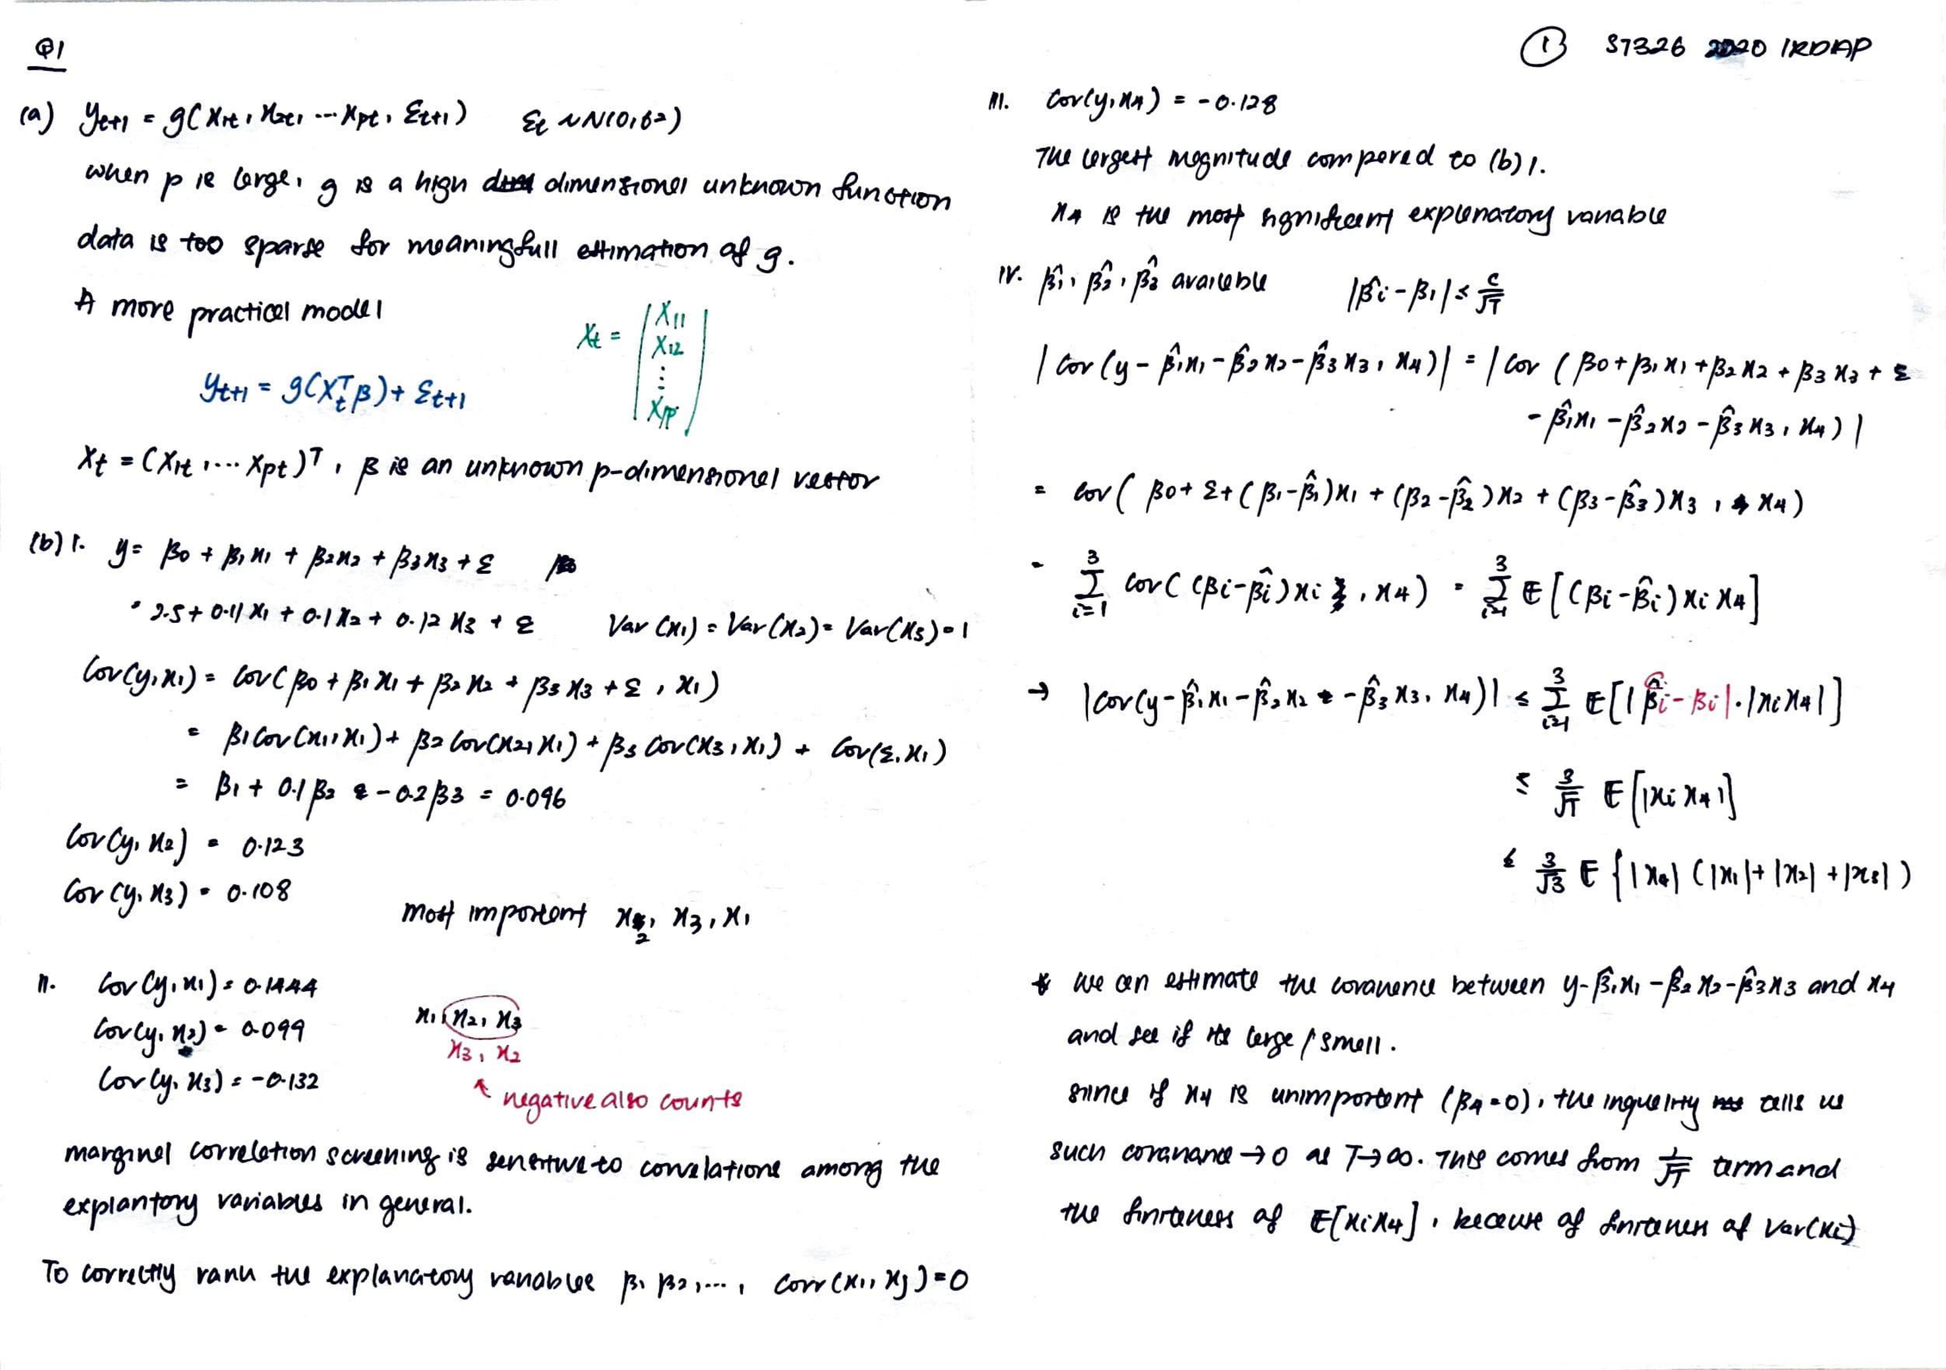 Q1
(a) y_{t+1} = g(x_{1t}, x_{2t}, ... x_{pt}, ε_{t+1}) ε_t ~ N(0, σ²)
when p is large, g is a high dimensional unknown function
data is too sparse for meaningfull estimation of g.
A more practical model
X_t = (X_{11} X_{12} ⋮ X_{1p})
y_{t+1} = g(X_t^T β) + ε_{t+1}
X_t = (X_{1t}, ... X_{pt})^T, β is an unknown p-dimensional vector
(b) i. y = β0 + β1x1 + β2x2 + β3x3 + ε
= 2.5 + 0.11x1 + 0.1x2 + 0.12x3 + ε Var(x1) = Var(x2) = Var(x3) = 1
Cov(y, x1) = Cov(β0 + β1x1 + β2x2 + β3x3 + ε, x1)
= β1Cov(x1, x1) + β2Cov(x2, x1) + β3Cov(x3, x1) + Cov(ε, x1)
= β1 + 0.1β2 - 0.2β3 = 0.096
Cov(y, x2) = 0.123
Cov(y, x3) = 0.108
most important x2, x3, x1
ii. Cov(y, x1) = 0.1444
Cov(y, x2) = 0.099
Cov(y, x3) = -0.132
x1, x2, x3
x3, x2
negative also counts
marginal correlation screening is sensitive to correlations among the
explantory variables in general.
To correctly rank the explanatory variables β1 β2, ..., corr(xi, xj) = 0
① ST326 2020 IRDAP
iii. Cov(y, x4) = -0.128
The largest magnitude compared to (b) i.
x4 is the most significant explanatory variable
iv. β̂1, β̂2, β̂3 available |β̂i - βi| ≤ c/√T
|Cov(y - β̂1x1 - β̂2x2 - β̂3x3, x4)| = |Cov(β0 + β1x1 + β2x2 + β3x3 + ε
- β̂1x1 - β̂2x2 - β̂3x3, x4)|
= Cov(β0 + ε + (β1 - β̂1)x1 + (β2 - β̂2)x2 + (β3 - β̂3)x3, x4)
= Σ_{i=1}^{3} Cov((βi - β̂i)xi, x4) = Σ_{i=1}^{3} E[(βi - β̂i)xi x4]
→ |Cov(y - β̂1x1 - β̂2x2 - β̂3x3, x4)| ≤ Σ_{i=1}^{3} E[|β̂i - βi|·|xi x4|]
≤ 3/√T E[|xi x4|]
≤ 3/√3 E{|x4|(|x1| + |x2| + |x3|)
* we can estimate the covariance between y - β̂1x1 - β̂2x2 - β̂3x3 and x4
and see if its large / small.
since if x4 is unimportant (β4 = 0), the inequality tells us
such covariance → 0 as T → ∞. This comes from 1/√T term and
the finiteness of E[xi x4], because of finiteness of var(xi)